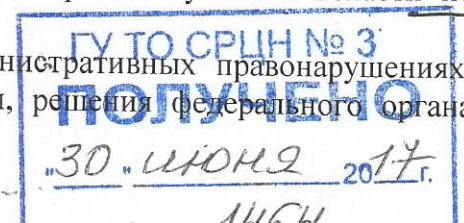 ГУ ТО СРЦН № 3
нистративных правонарушениях
и, решения федерального органа
ПОЛУЧЕНО
"30" июня 2017 г.
1464